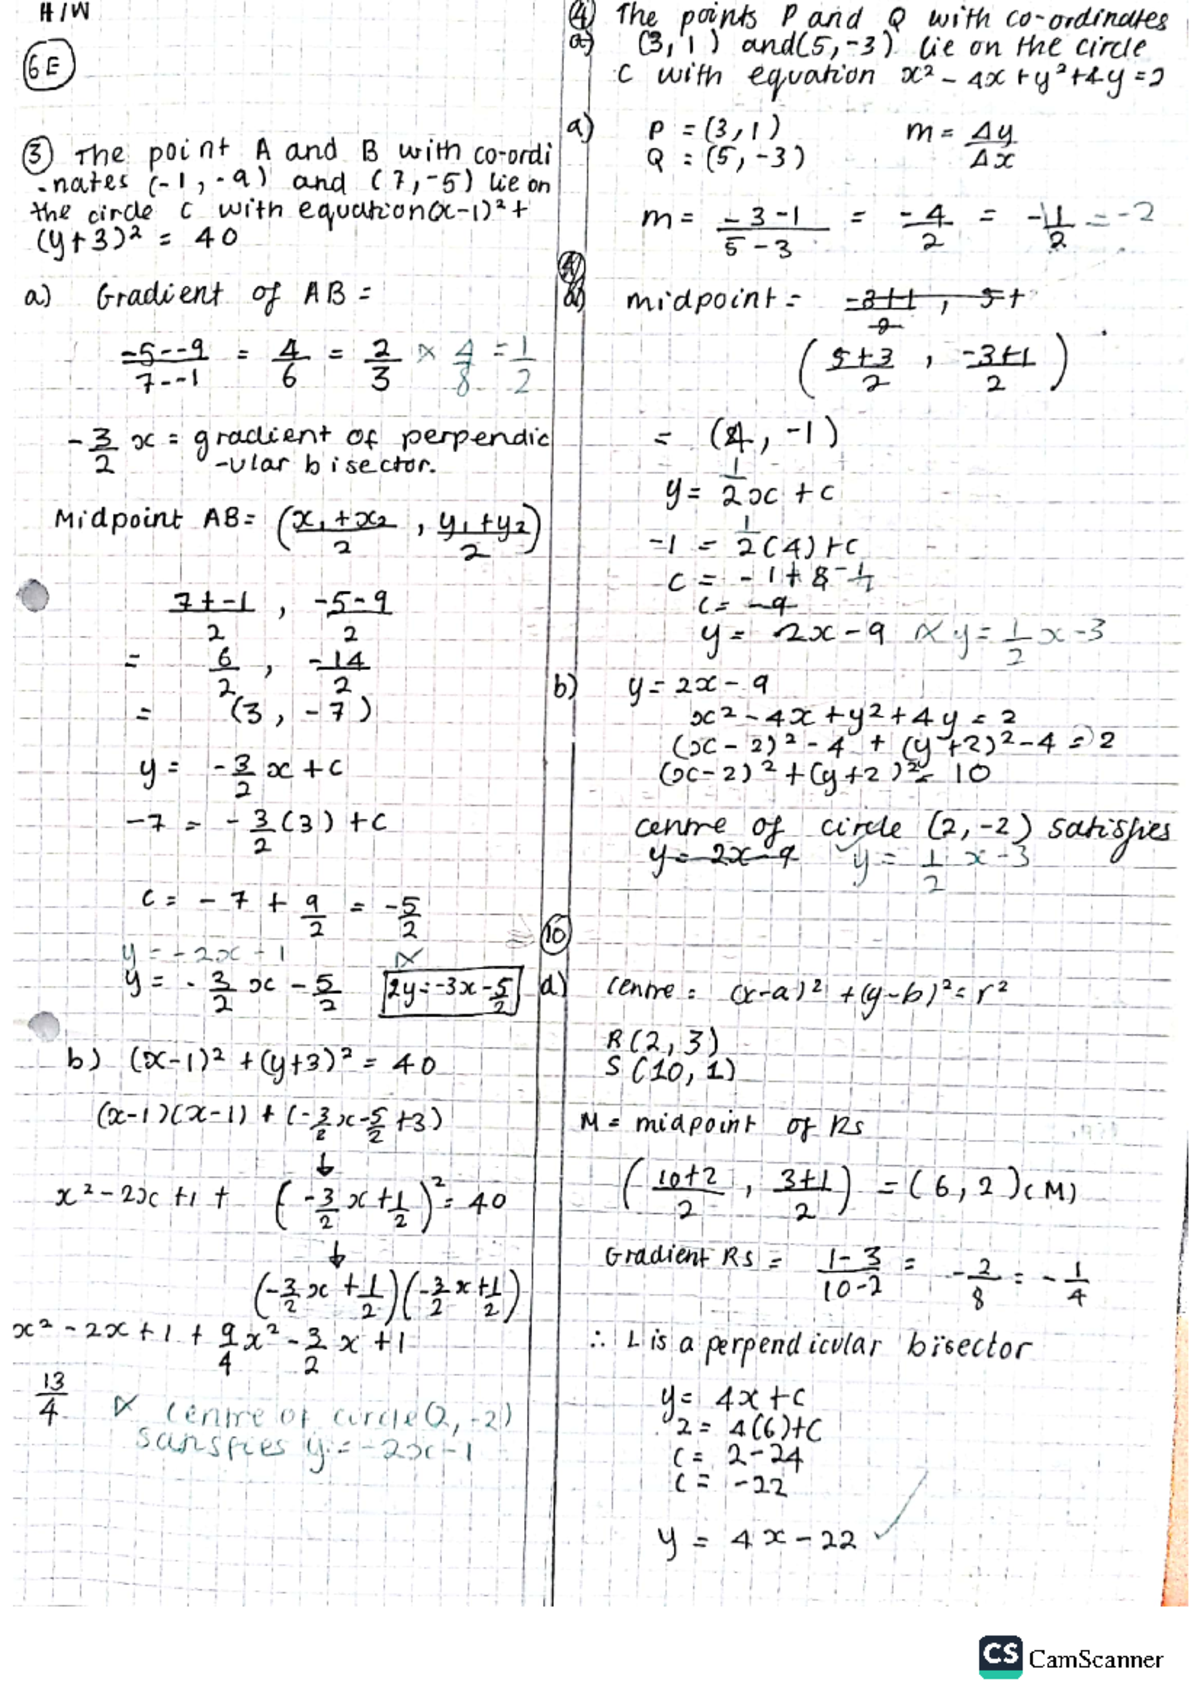 H/W
6E
③ The point A and B with co-ordi
-nates (-1, -9) and (7, -5) lie on
the circle C with equation (x-1)² +
(y+3)² = 40
a) Gradient of AB =
-5--9/7--1 = 4/6 = 2/3 × 4/8 = 1/2
-3/2 x = gradient of perpendic
-ular bisector.
Midpoint AB = (x₁+x₂/2, y₁+y₂/2)
7+-1/2, -5-9/2
= 6/2, -14/2
= (3, -7)
y = -3/2 x + c
-7 = -3/2 (3) + c
c = -7 + 9/2 = -5/2
y = -2x - 1
y = -3/2 x - 5/2 2y = -3x - 5/2
b) (x-1)² + (y+3)² = 40
(x-1)(x-1) + (-3/2 x - 5/2 + 3)
↓
x² - 2x + 1 + (-3/2 x + 1/2)² = 40
↓
(-3/2 x + 1/2)(-3/2 x + 1/2)
x² - 2x + 1 + 9/4 x² - 3/2 x + 1
13/4 × centre of circle (2, -2)
satisfies y = -2x - 1
④ The points P and Q with co-ordinates
a) (3, 1) and (5, -3) lie on the circle
C with equation x² - 4x + y² + 4y = 2
a) P = (3, 1) m = Δy/Δx
Q = (5, -3)
m = -3-1/5-3 = -4/2 = -1/2 = -2
midpoint = -3+1/2, 5+
(5+3/2, -3+1/2)
= (4, -1)
y = 1/2 x + c
-1 = 1/2 (4) + c
c = -1 + 8
c = -9
y = 2x - 9 × y = 1/2 x - 3
b) y = 2x - 9
x² - 4x + y² + 4y = 2
(x-2)² - 4 + (y+2)² - 4 = 2
(x-2)² + (y+2)² = 10
centre of circle (2, -2) satisfies
y = 2x - 9 y = 1/2 x - 3
⑩
a) centre: (x-a)² + (y-b)² = r²
R (2, 3)
S (10, 1)
M = midpoint of RS
(10+2/2, 3+1/2) = (6, 2) (M)
Gradient RS = 1-3/10-2 = -2/8 = -1/4
∴ L is a perpendicular bisector
y = 4x + c
2 = 4(6) + c
c = 2 - 24
c = -22
y = 4x - 22 ✓
CS CamScanner